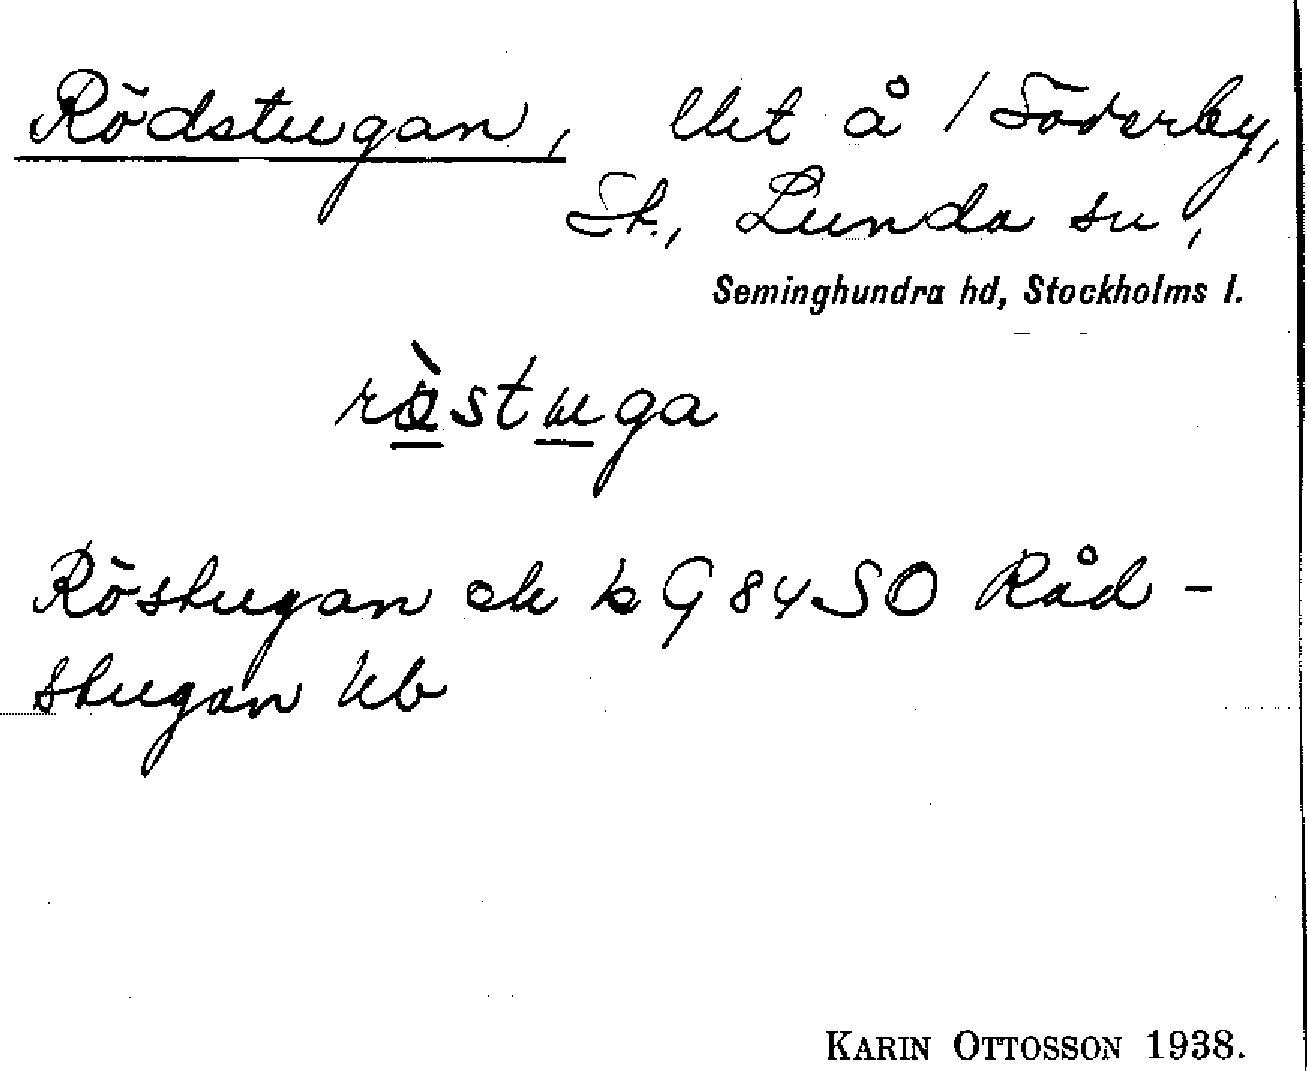 Rödstugan, Utst å / Söderby,
St., Lunda sn,
Seminghundra hd, Stockholms l.
rö̀stuga
Röstugan ek k G 84 SO Råd-
stugan Ub
KARIN OTTOSSON 1938.